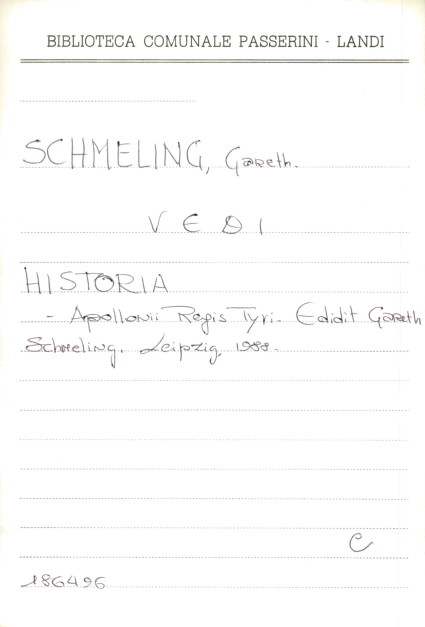 BIBLIOTECA COMUNALE PASSERINI - LANDI
SCHMELING, Gareth.
VEDI
HISTORIA
- Apollonii Regis Tyri. Edidit Gareth
Schmeling. Leipzig, 1988.
C
186496